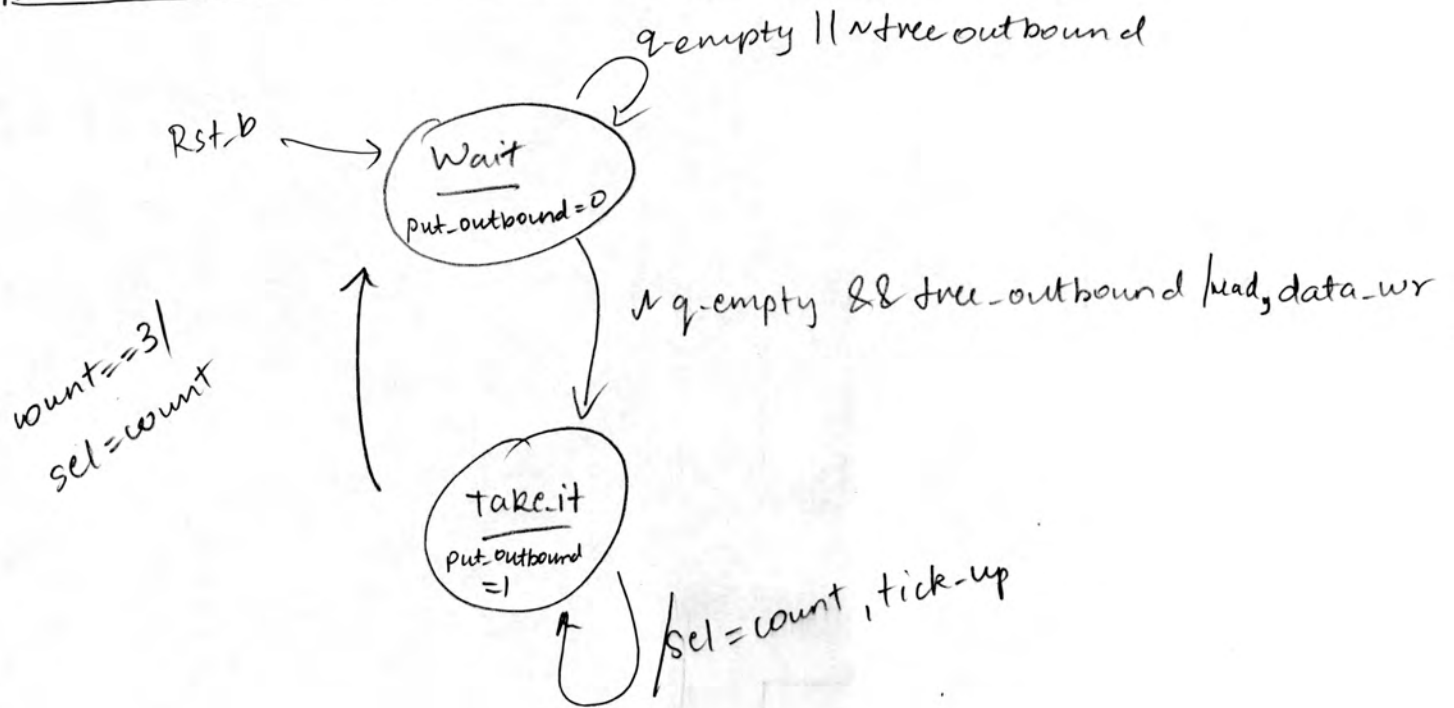 q-empty || ~free outbound
Rst_b
Wait
put_outbound=0
~ q-empty && free_outbound /read, data_wr
count==3/
sel=count
Take_it
put_outbound
=1
/sel=count, tick-up